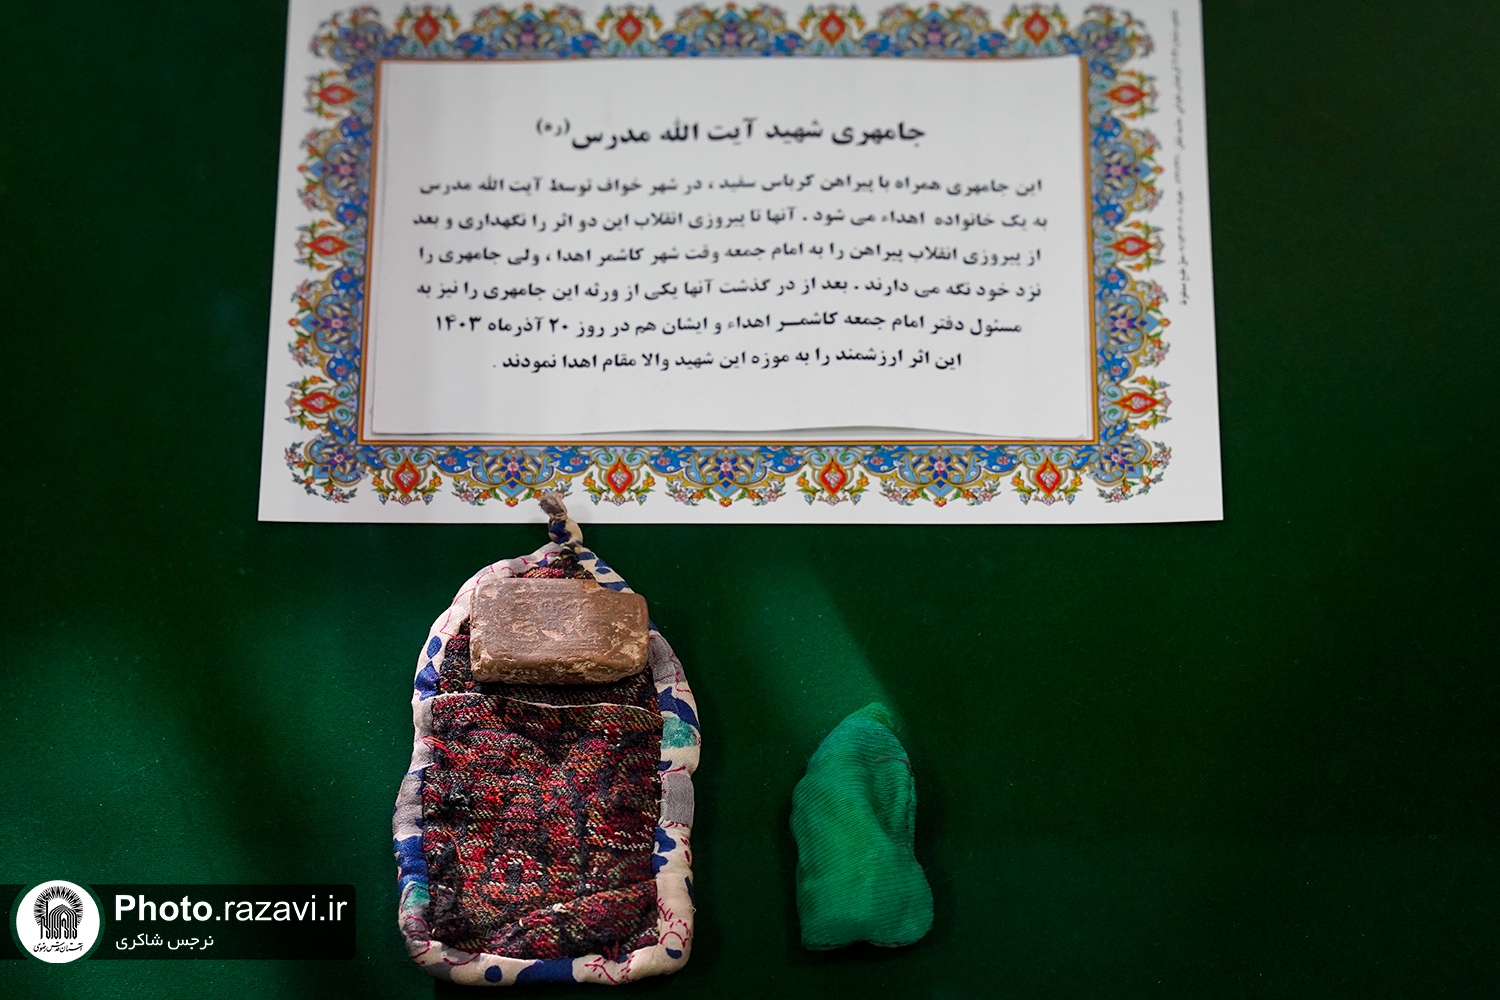 جامهری شهید آیت الله مدرس(ره)
این جامهری همراه با پیراهن کرباس سفید ، در شهر خواف توسط آیت الله مدرس
به یک خانواده اهداء می شود . آنها تا پیروزی انقلاب این دو اثر را نگهداری و بعد
از پیروزی انقلاب پیراهن را به امام جمعه وقت شهر کاشمر اهدا ، ولی جامهری را
نزد خود نگه می دارند . بعد از در گذشت آنها یکی از ورثه این جامهری را نیز به
مسئول دفتر امام جمعه کاشمــر اهداء و ایشان هم در روز ۲۰ آذرماه ۱۴۰۳
این اثر ارزشمند را به موزه این شهید والا مقام اهدا نمودند .
Photo.razavi.ir
نرجس شاکری
آستان قدس رضوی